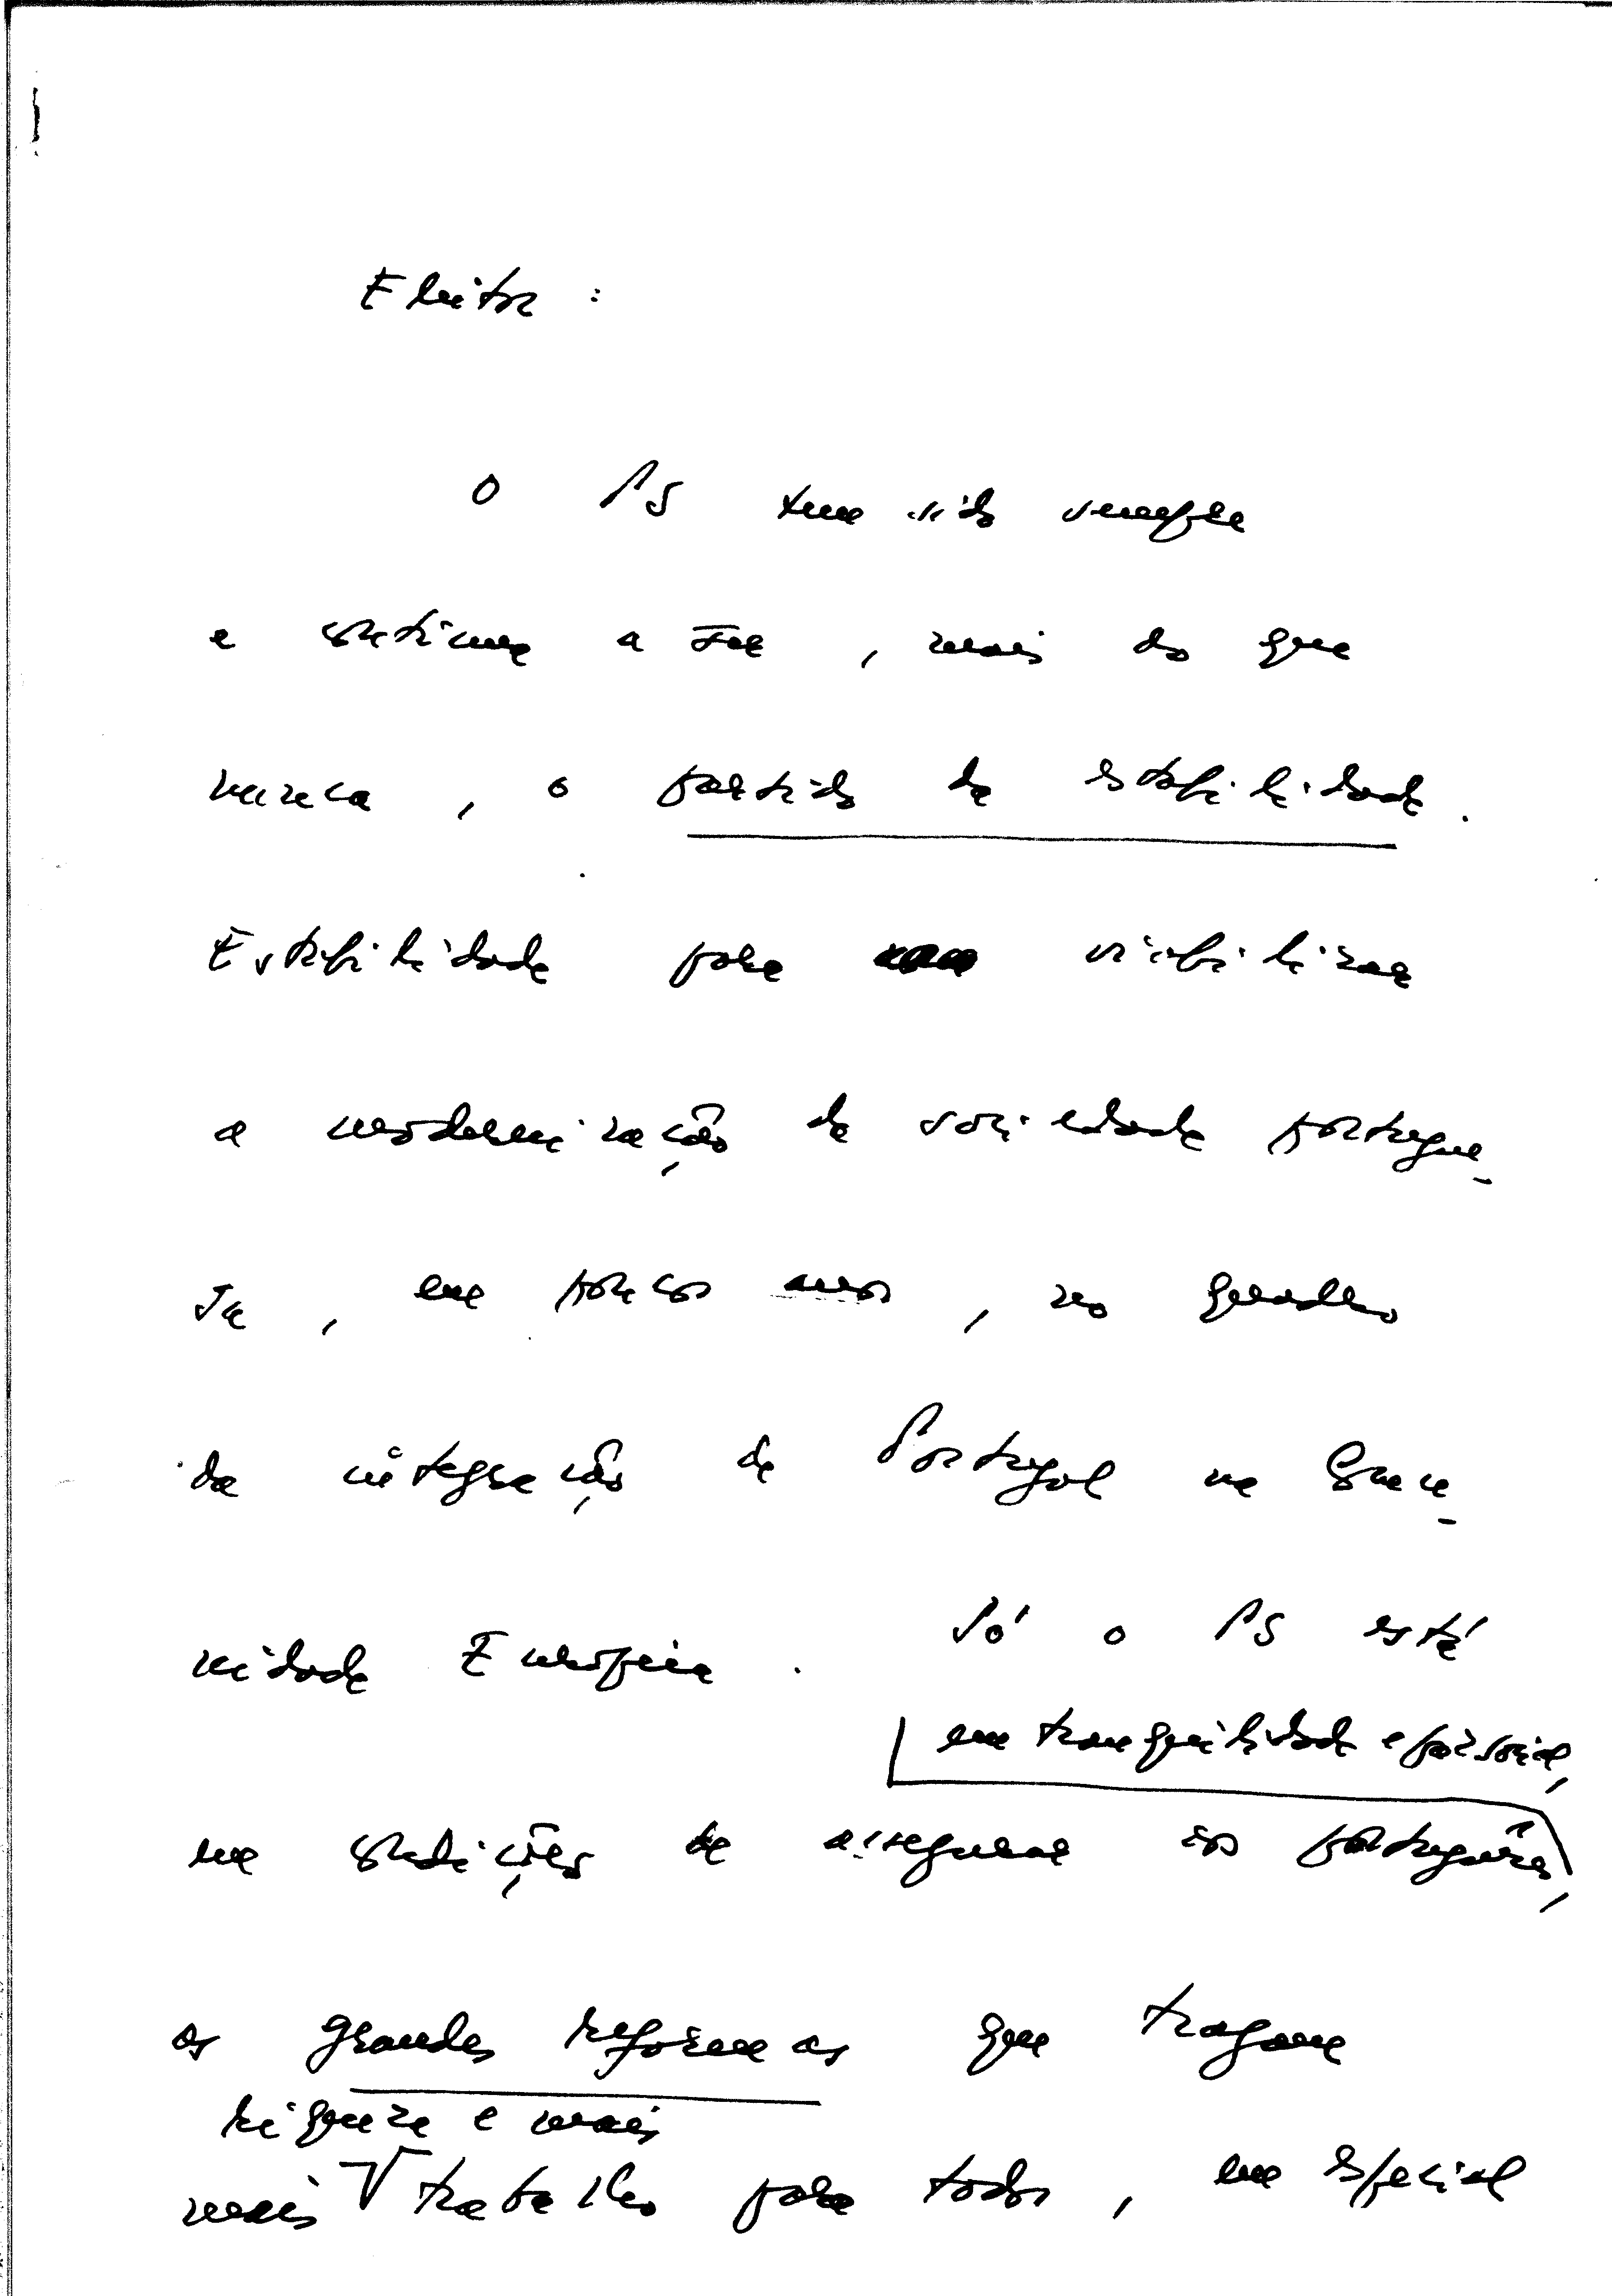 Eleitor :
O PS tem sido sempre
e continua a ser , mais do que
nunca , o partido da estabilidade .
Estabilidade para viabilizar
a modernização da sociedade portugue-
sa , em poucos anos , no quadro
da integração de Portugal na Comu-
nidade Europeia . Só o PS está
em tranquilidade e paz social,
em condições de assegurar aos portugueses,
as grandes reformas que tragam
riqueza e mais
mais trabalho para todos , em especial